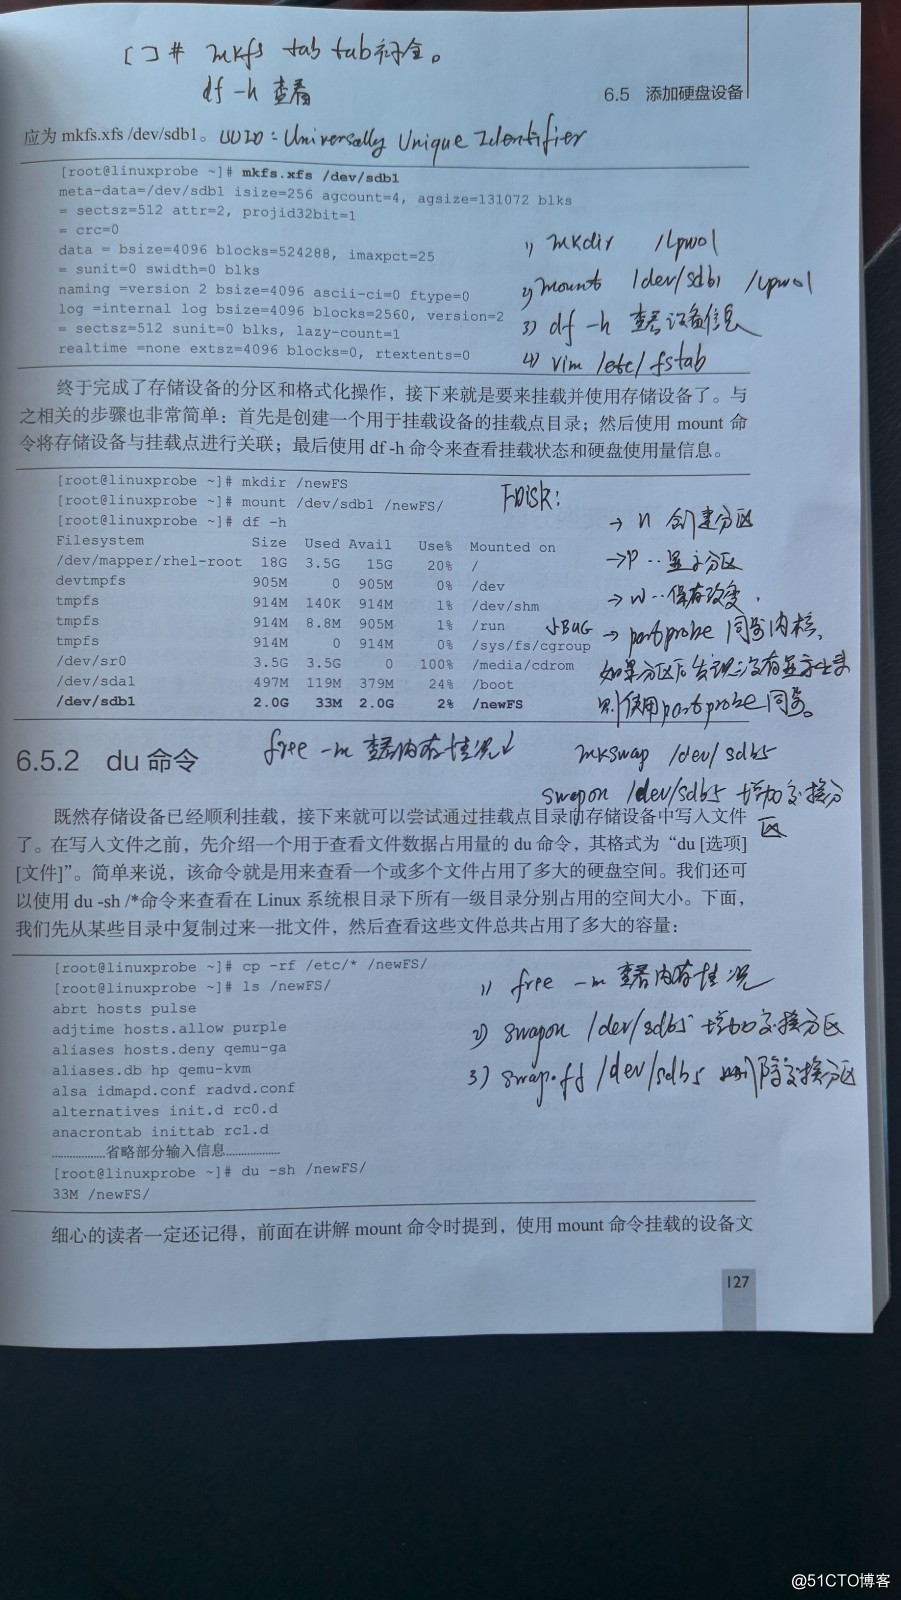 [ ]# mkfs tab tab补全。
df -h 查看
6.5 添加硬盘设备
应为 mkfs.xfs /dev/sdb1。 UUID: Universally Unique Identifier
[root@linuxprobe ~]# mkfs.xfs /dev/sdb1
meta-data=/dev/sdb1 isize=256 agcount=4, agsize=131072 blks
= sectsz=512 attr=2, projid32bit=1
= crc=0
data = bsize=4096 blocks=524288, imaxpct=25
= sunit=0 swidth=0 blks
naming =version 2 bsize=4096 ascii-ci=0 ftype=0
log =internal log bsize=4096 blocks=2560, version=2
= sectsz=512 sunit=0 blks, lazy-count=1
realtime =none extsz=4096 blocks=0, rtextents=0
1) mkdir
2) mount /dev/sdb1
3) df -h 查看设备信息
4) vim /etc/fstab
终于完成了存储设备的分区和格式化操作，接下来就是要来挂载并使用存储设备了。与
之相关的步骤也非常简单：首先是创建一个用于挂载设备的挂载点目录；然后使用 mount 命
令将存储设备与挂载点进行关联；最后使用 df -h 命令来查看挂载状态和硬盘使用量信息。
[root@linuxprobe ~]# mkdir /newFS
[root@linuxprobe ~]# mount /dev/sdb1 /newFS/
[root@linuxprobe ~]# df -h
Filesystem Size Used Avail Use% Mounted on
/dev/mapper/rhel-root 18G 3.5G 15G 20% /
devtmpfs 905M 0 905M 0% /dev
tmpfs 914M 140K 914M 1% /dev/shm
tmpfs 914M 8.8M 905M 1% /run
tmpfs 914M 0 914M 0% /sys/fs/cgroup
/dev/sr0 3.5G 3.5G 0 100% /media/cdrom
/dev/sda1 497M 119M 379M 24% /boot
/dev/sdb1 2.0G 33M 2.0G 2% /newFS
FDisk:
→ n 创建分区
→ p … 显示分区
→ w … 保存改变.
BUG → partprobe 同步内核,
如果分区后发现没有显示
则使用partprobe同步。
6.5.2 du 命令
free -m 查看内存情况↓
mkswap /dev/sdb5
swapon /dev/sdb5 增加交换分
区
既然存储设备已经顺利挂载，接下来就可以尝试通过挂载点目录向存储设备中写入文件
了。在写入文件之前，先介绍一个用于查看文件数据占用量的 du 命令，其格式为“du [选项]
[文件]”。简单来说，该命令就是用来查看一个或多个文件占用了多大的硬盘空间。我们还可
以使用 du -sh /*命令来查看在 Linux 系统根目录下所有一级目录分别占用的空间大小。下面，
我们先从某些目录中复制过来一批文件，然后查看这些文件总共占用了多大的容量：
[root@linuxprobe ~]# cp -rf /etc/* /newFS/
[root@linuxprobe ~]# ls /newFS/
abrt hosts pulse
adjtime hosts.allow purple
aliases hosts.deny qemu-ga
aliases.db hp qemu-kvm
alsa idmapd.conf radvd.conf
alternatives init.d rc0.d
anacrontab inittab rc1.d
………………省略部分输入信息………………
[root@linuxprobe ~]# du -sh /newFS/
33M /newFS/
1) free -m 查看内存情况
2) swapon /dev/sdb5 增加交换分区
3) swapoff /dev/sdb5 删除交换分区
细心的读者一定还记得，前面在讲解 mount 命令时提到，使用 mount 命令挂载的设备文
127
@51CTO博客